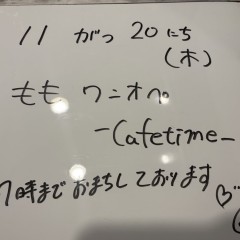 11 がつ 20 にち
(木)
もも ワンオペ
-Cafetime-
7時まで おまちしております♡